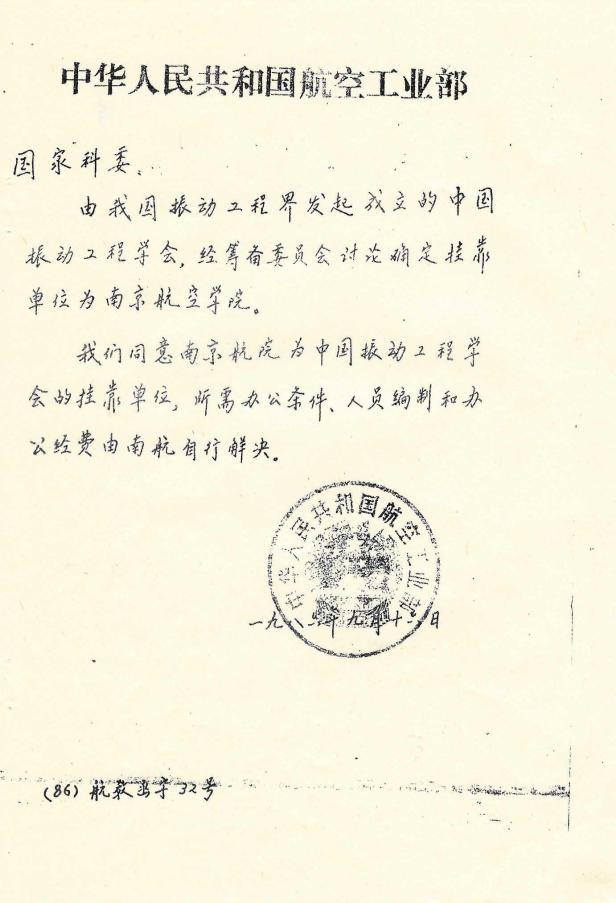 中华人民共和国航空工业部
国家科委：
由我国振动工程界发起成立的中国
振动工程学会，经筹备委员会讨论确定挂靠
单位为南京航空学院。
我们同意南京航院为中国振动工程学
会的挂靠单位，所需办公条件、人员编制和办
公经费由南航自行解决。
中华人民共和国航空工业部
一九八 年九月十 日
(86) 航教 字32号